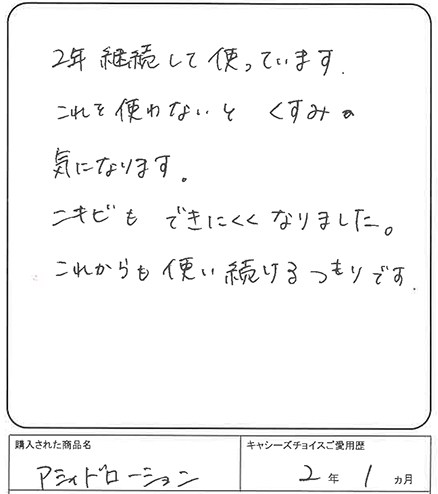 2年 継続して 使っています.
これを 使わないと くすみが
気になります。
ニキビも できにくく なりました。
これからも 使い 続ける つもりです.
購入された商品名
キャシーズチョイスご愛用歴
アシィドローション
2 年 1 ヵ月